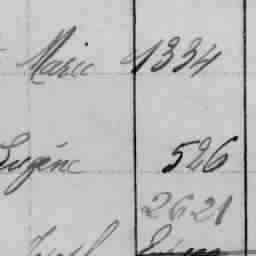 Marie 1334
Eugène 526
2621